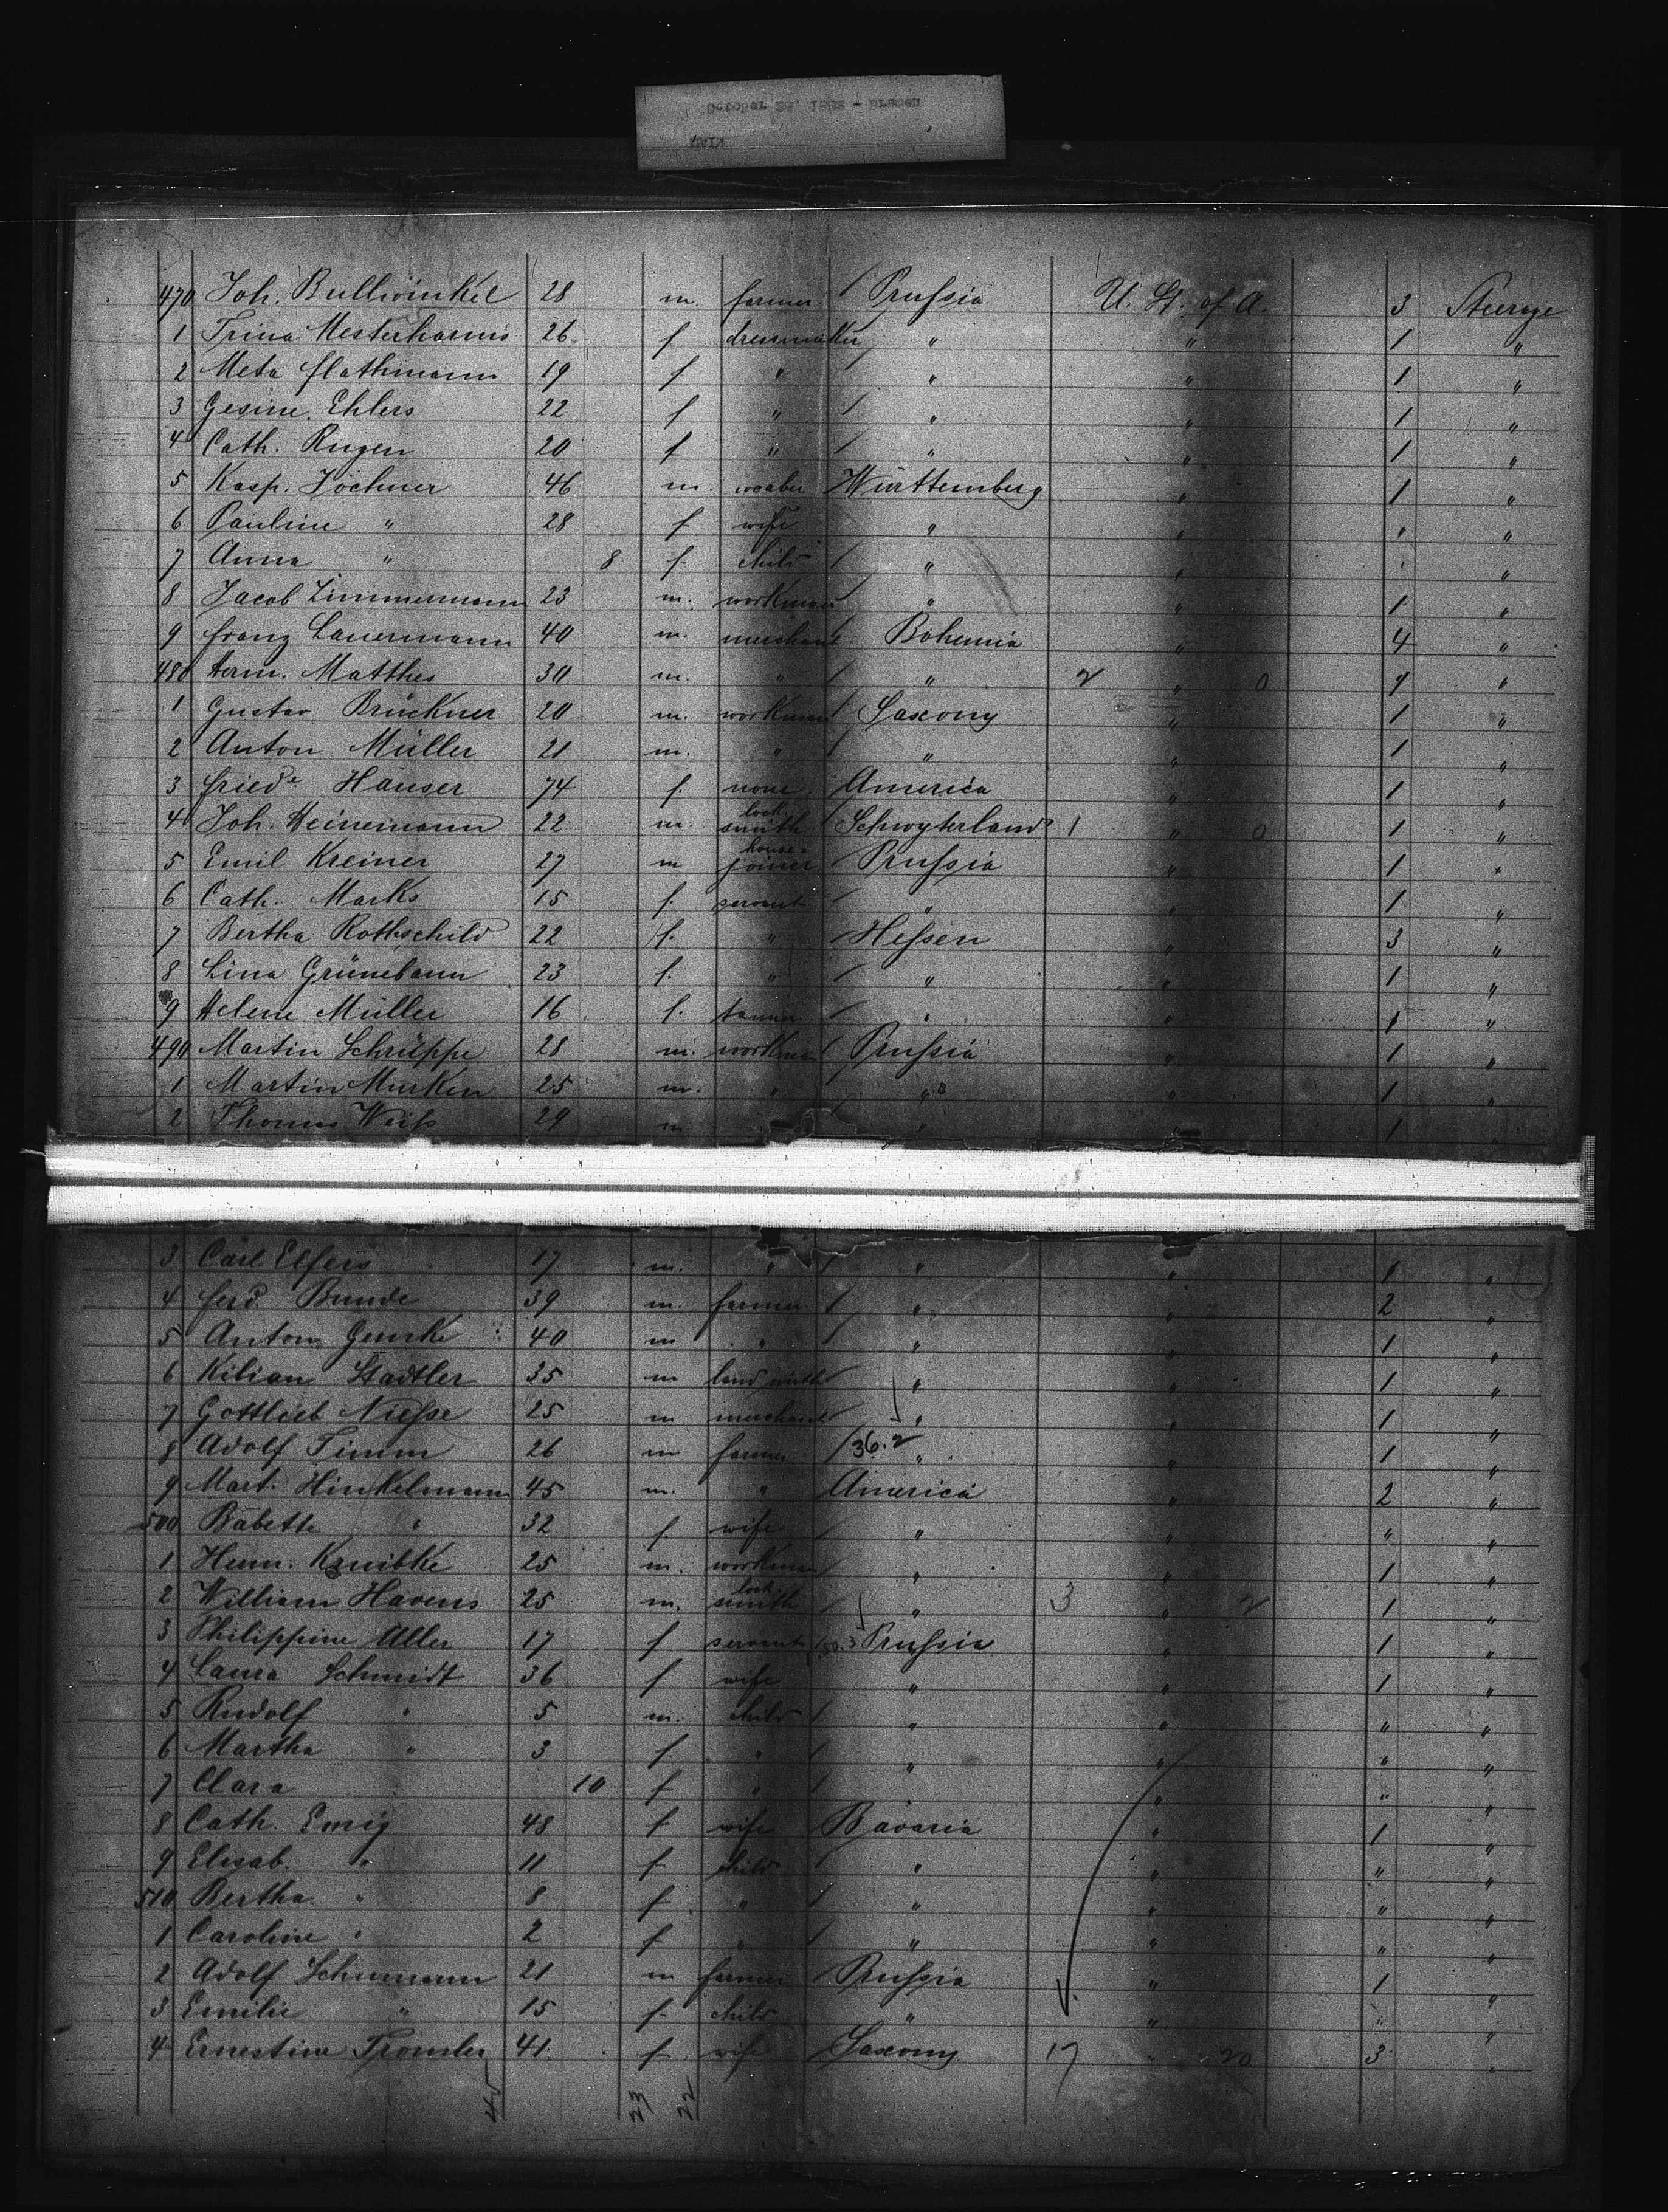 470 Joh. Bullwinkel 28 m. farmer Prussia U. St. of A. 3 Steerage
1 Trina Mesterharms 26 f dressmaker " " 1 "
2 Meta Flathmann 19 f " " " 1 "
3 Gesine Ehlers 22 f " " " 1 "
4 Cath. Rugen 20 f " " " 1 "
5 Kasp. Jöchner 46 m. Württemberg " 1 "
6 Pauline " 28 f wife " " " "
7 Anna " 8 f child " " "
8 Jacob Zimmermann 23 m. workman " " 1 "
9 Franz Lauermann 40 m. merchant Bohemia " 4 "
480 Herm. Matthes 30 m. " " 2 " 0 "
1 Gustav Brückner 20 m. workman Saxony " 1 "
2 Anton Müller 21 m. " " " 1 "
3 Friede Häuser 74 f. none America " 1 "
4 Joh. Heinemann 22 m. lock smith Schwyterland 1 " 0 1 "
5 Emil Kreiner 27 m house- joiner Prussia " 1 "
6 Cath. Marks 15 f. servant " " 1 "
7 Bertha Rothschild 22 f. " Hessen " 3 "
8 Lina Grünebaum 23 f. " " " 1 "
9 Helene Müller 16 f. " " 1 "
490 Martin Schrüppe 28 m. workman Prussia " 1 "
1 Martin Murken 25 m. " " " 1 "
2 Thomas Weiss 29 m " 1
3 Carl Elfers 17 m. " " " 1 "
4 Ferd. Bunde 39 m. farmer " " 2 "
5 Anton 40 m " " " 1 "
6 Kilian Stadtler 35 m " " 1 "
7 Gottlieb Niesse 25 m merchant " " 1 "
8 Adolf Timm 26 m farmer 36.2 " " 1 "
9 Mart. Hinkelmann 45 m. " America " 2 "
500 Babette " 32 f wife " " " "
1 Herm. 25 m. workman " " 1 "
2 William Havens 25 m. lock smith " 3 " 2 1 "
3 Philippine Uller 17 f servant Prussia " 1 "
4 Laura Schmidt 36 f wife " " 1 "
5 Rudolf " 5 m. child " " " "
6 Martha " 3 f " " " " "
7 Clara 10 f " " " "
8 Cath. Emig 48 f wife Bavaria " 1 "
9 Elisab. " 11 f child " " " "
510 Bertha " 8 f " " " " "
1 Caroline " 2 f " " " " "
2 Adolf Schumann 21 m farmer Prussia " 1 "
3 Emilie " 15 f child " " " "
4 Ernestine Tromler 41 f wife Saxony 17 " 20 3 "
45 23 22